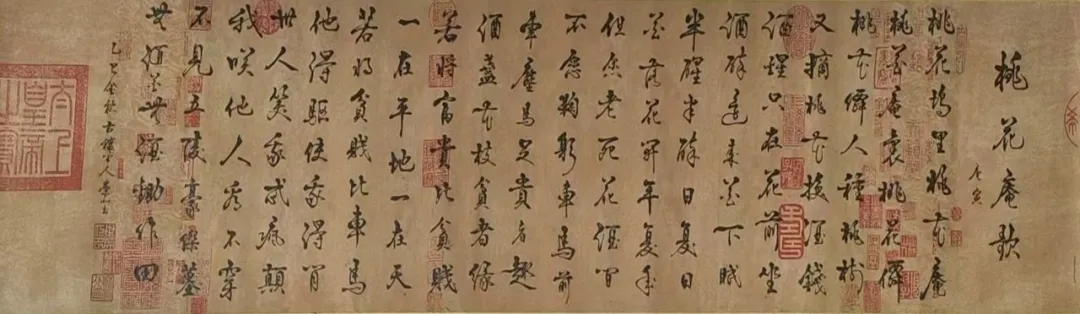 桃花庵歌
唐寅
桃花塢里桃花庵
桃花庵裏桃花僊
桃花僊人種桃樹
又摘桃花換酒錢
酒醒只在花前坐
酒醉還來花下眠
半醒半醉日復日
花落花開年復年
但願老死花酒間
不願鞠躬車馬前
車塵馬足貴者趣
酒盞花枝貧者緣
若將富貴比貧賤
一在平地一在天
若將貧賤比車馬
他得驅使我得閒
世人笑我忒瘋顛
我咲他人看不穿
不見五陵豪傑墓
無花無酒鋤作田
乙巳金秋
太上皇帝之寶